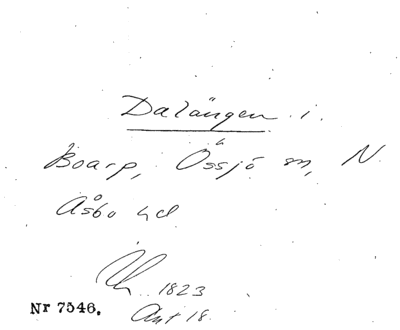 Dalängen i
Boarp, Össjö sn, N
Åsbo hd
1823
Nr 7546. Akt 18